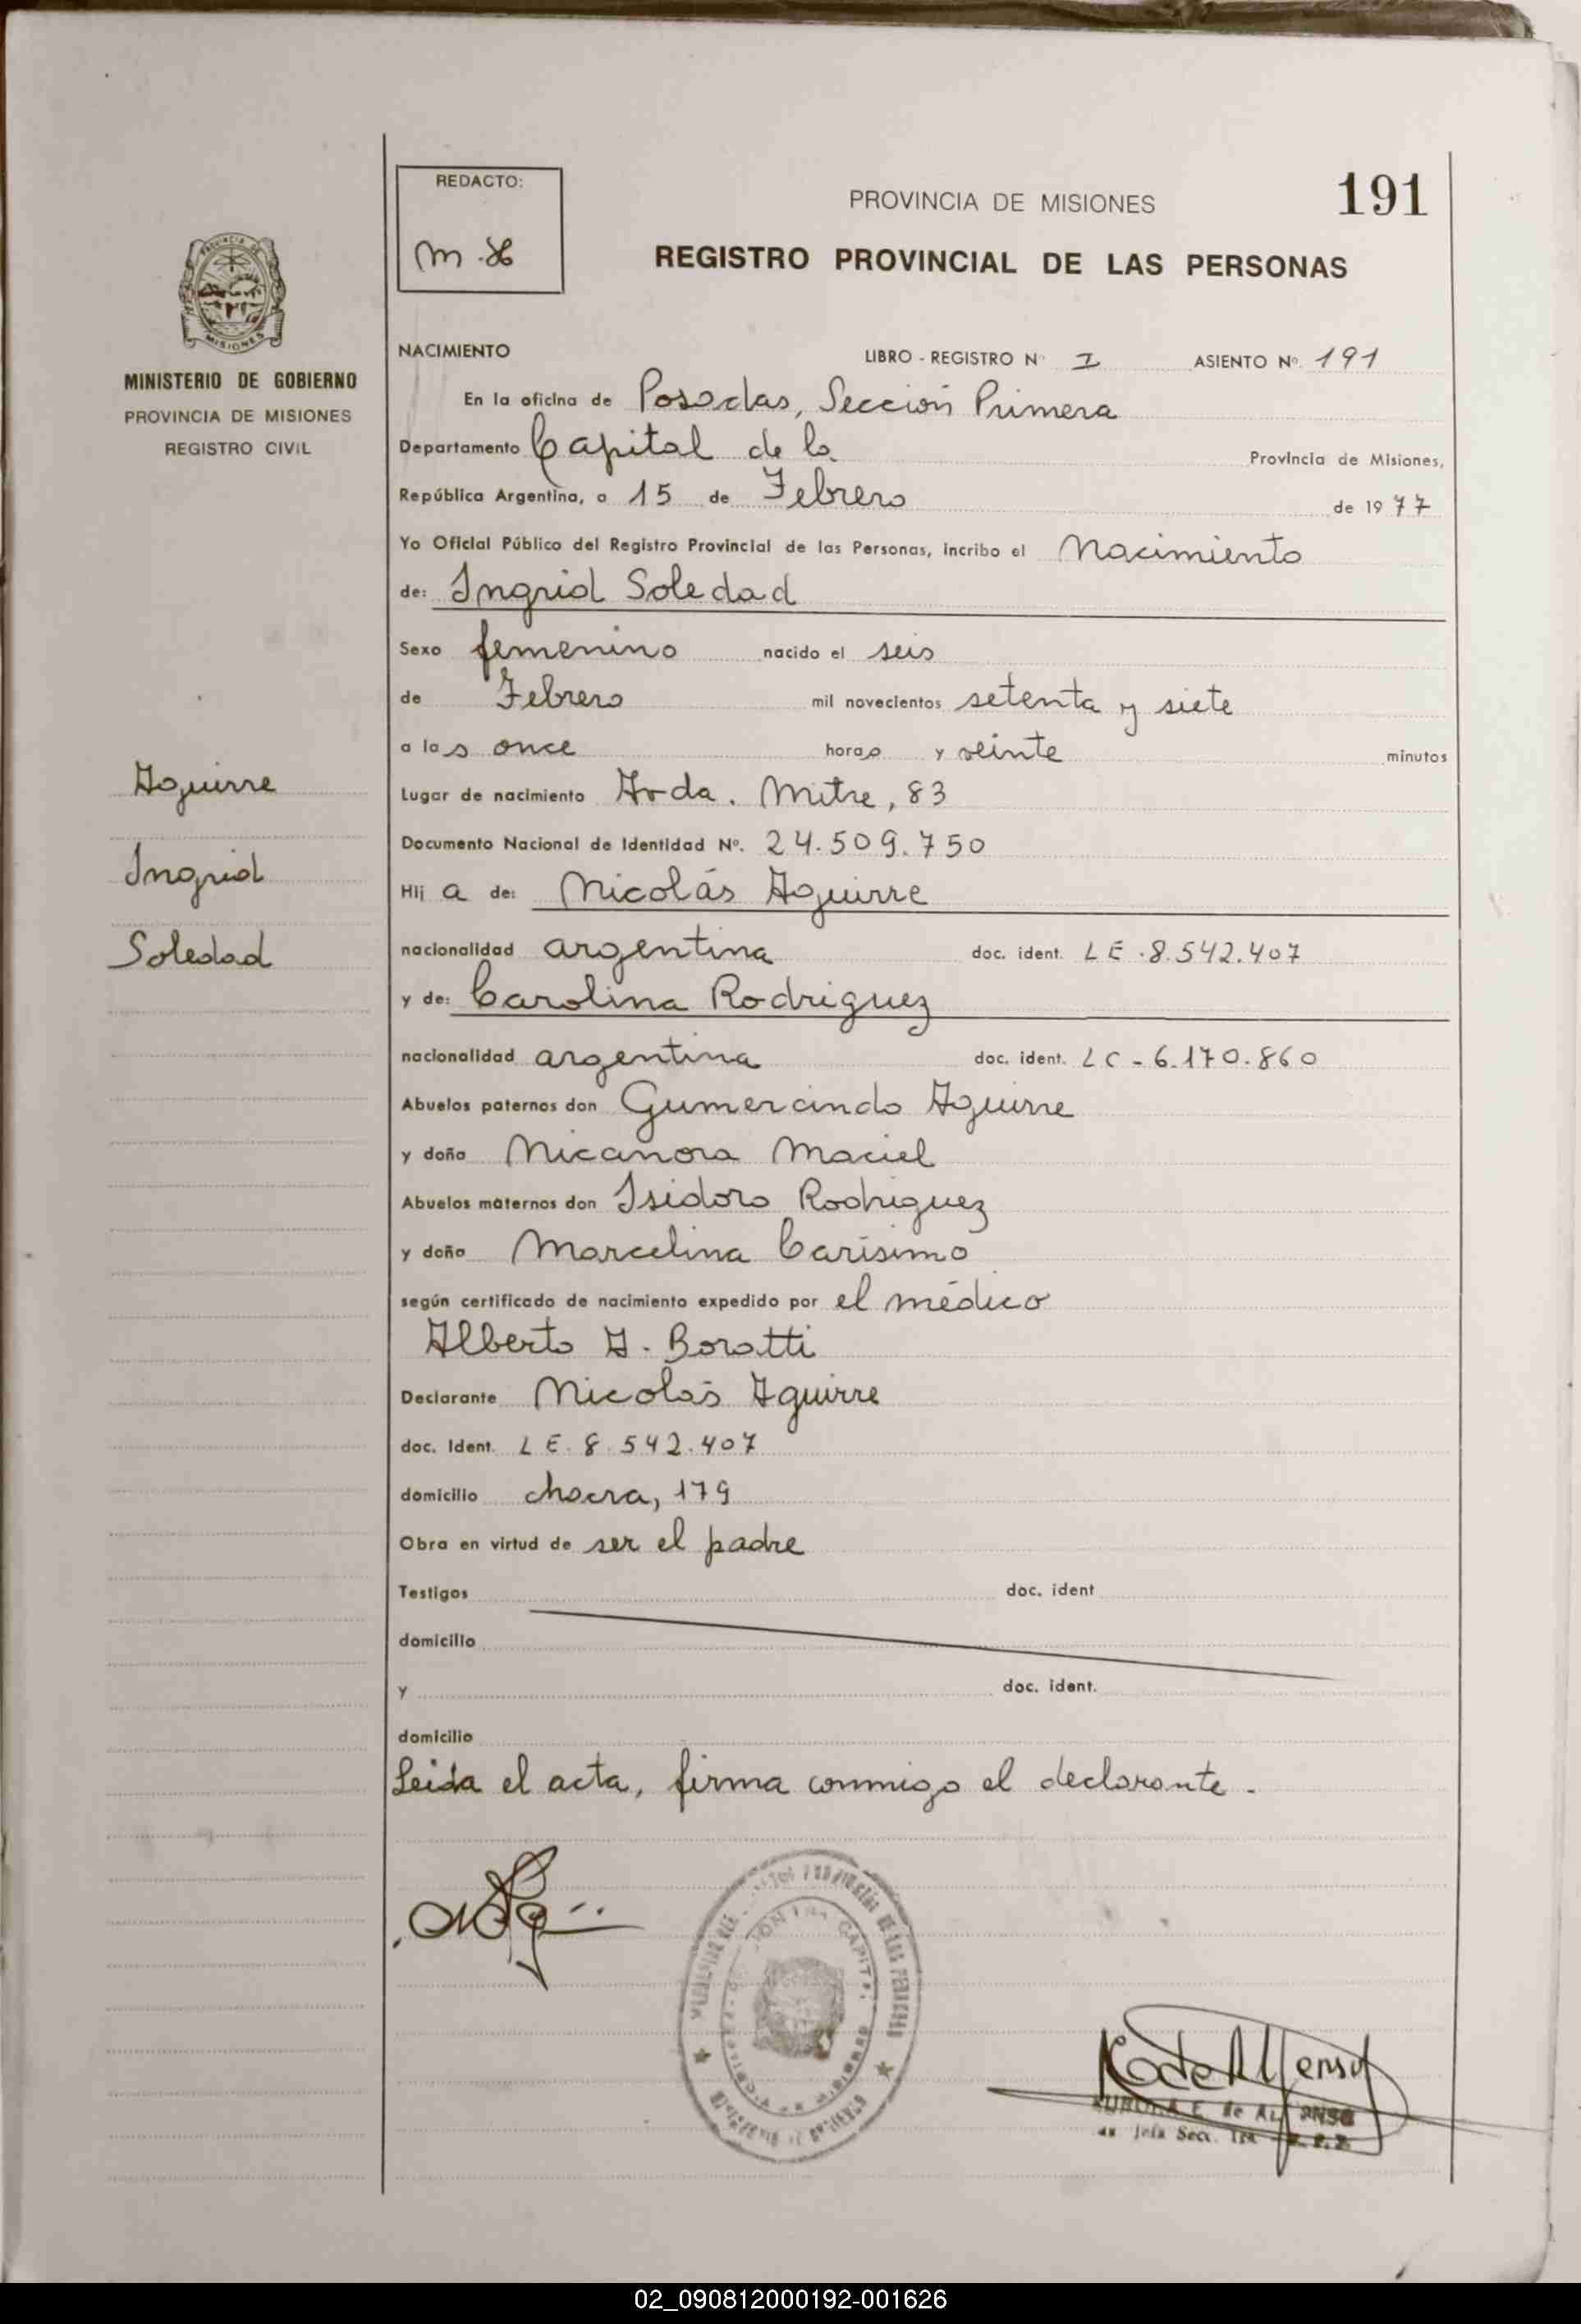 REDACTO:
m.H
PROVINCIA DE MISIONES
191
REGISTRO PROVINCIAL DE LAS PERSONAS
MINISTERIO DE GOBIERNO
PROVINCIA DE MISIONES
REGISTRO CIVIL
Aguirre
Ingrid
Soledad
NACIMIENTO LIBRO - REGISTRO N° I ASIENTO Nº. 191
En la oficina de Posadas, Sección Primera
Departamento Capital de la Provincia de Misiones,
República Argentina, a 15 de Febrero de 1977
Yo Oficial Público del Registro Provincial de las Personas, incribo el Nacimiento
de: Ingrid Soledad
Sexo femenino nacido el seis
de Febrero mil novecientos setenta y siete
a las once horas y veinte minutos
Lugar de nacimiento Avda. Mitre, 83
Documento Nacional de Identidad Nº. 24.509.750
Hij a de: Nicolás Aguirre
nacionalidad argentina doc. ident. LE.8.542.407
y de: Carolina Rodriguez
nacionalidad argentina doc. ident. LC-6.170.860
Abuelos paternos don Gumercindo Aguirre
y doña Nicanora Maciel
Abuelos maternos don Isidoro Rodriguez
y doña Marcelina Carisimo
según certificado de nacimiento expedido por el médico
Alberto A. Boratti
Declarante Nicolás Aguirre
doc. Ident. LE.8.542.407
domicilio chacra, 179
Obra en virtud de ser el padre
Testigos doc. ident
domicilio
y doc. ident.
domicilio
Leida el acta, firma conmigo el declarante.
02_090812000192-001626